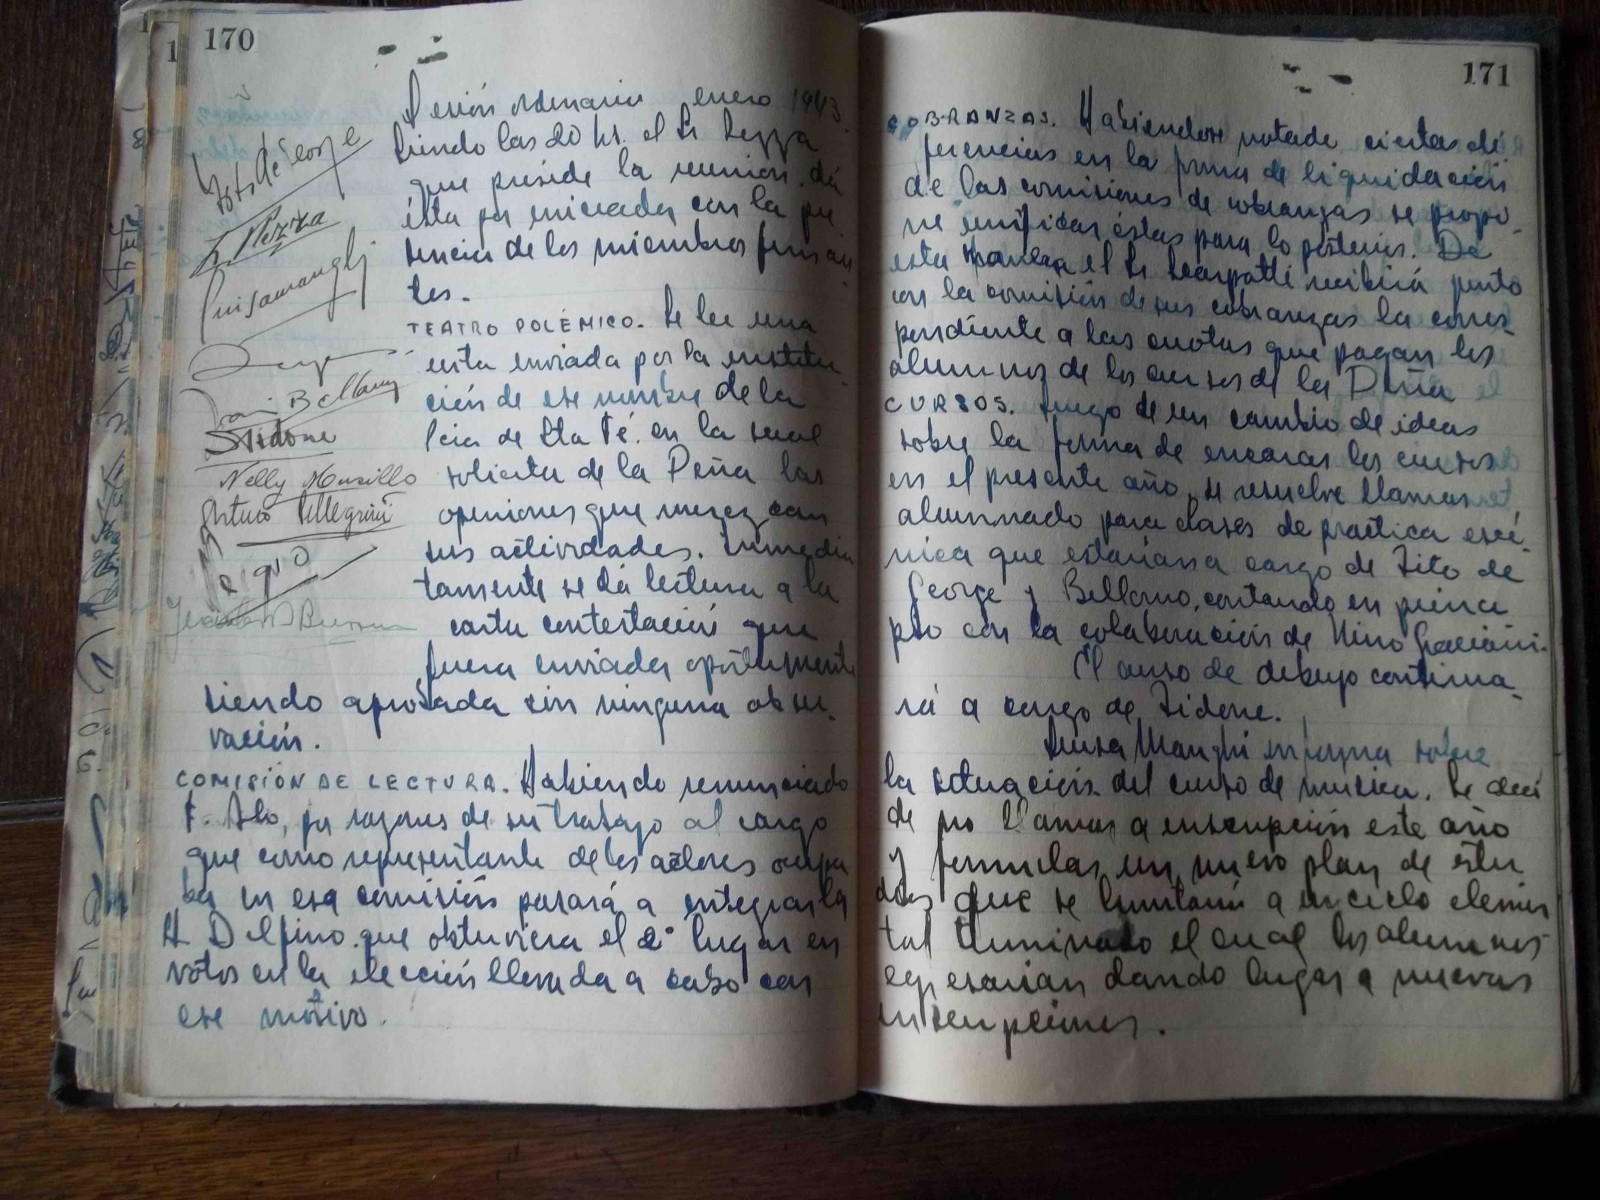 170
Sesión ordinaria enero 1943.
Siendo las 20 hs. el Sr Pezza
que preside la reunión. dá
ésta por iniciada con la pre
sencia de los miembros firman
tes.
Tito de George
L Pezza
Luisamanghi
Bellamy
S Tidone
Nelly Murillo
Arturo Pellegrini
TEATRO POLÉMICO. Se lee una
carta enviada por la institu-
ción de ese nombre de la
Pcia de Sta Fé. en la cual
solicita de la Peña las
opiniones que merezcan
sus actividades. Inmedia
tamente se dá lectura a la
carta contestación que
fuera enviada oportunamente
siendo aprobada sin ninguna obser-
vación.
COMISIÓN DE LECTURA. Habiendo renunciado
F. Alo, por razones de su trabajo al cargo
que como representante de los actores ocupa
ba en esa comisión pasará a integrarla
H. Delfino. que obtuviera el 2º lugar en
votos en la elección llevada a cabo con
ese motivo.
171
COBRANZAS. Habiendose notado ciertas di
ferencias en la forma de liquidación
de las comisiones de cobranzas se propo-
ne unificar éstas para lo posterior. De
esta manera el Sr Scarpatti recibirá junto
con la comisión de sus cobranzas la corres-
pondiente a las cuotas que pagan los
alumnos de los cursos de la Peña
CURSOS. Luego de un cambio de ideas
sobre la forma de encarar los cursos
en el presente año, se resuelve llamar
alumnado para clases de práctica escé-
nica que estarían a cargo de Tito de
George y Bellomo, contando en princi
pio con la colaboración de Nino Graciani.
El curso de dibujo continua-
rá a cargo de Tidone.
Luisa Manghi informa sobre
la situación del curso de música. Se deci
de no llamar a inscripción este año
y formular un nuevo plan de estu
dios que se limitaría a un ciclo elemen
tal terminado el cual los alumnos
egresarían dando lugar a nuevas
inscripciones.